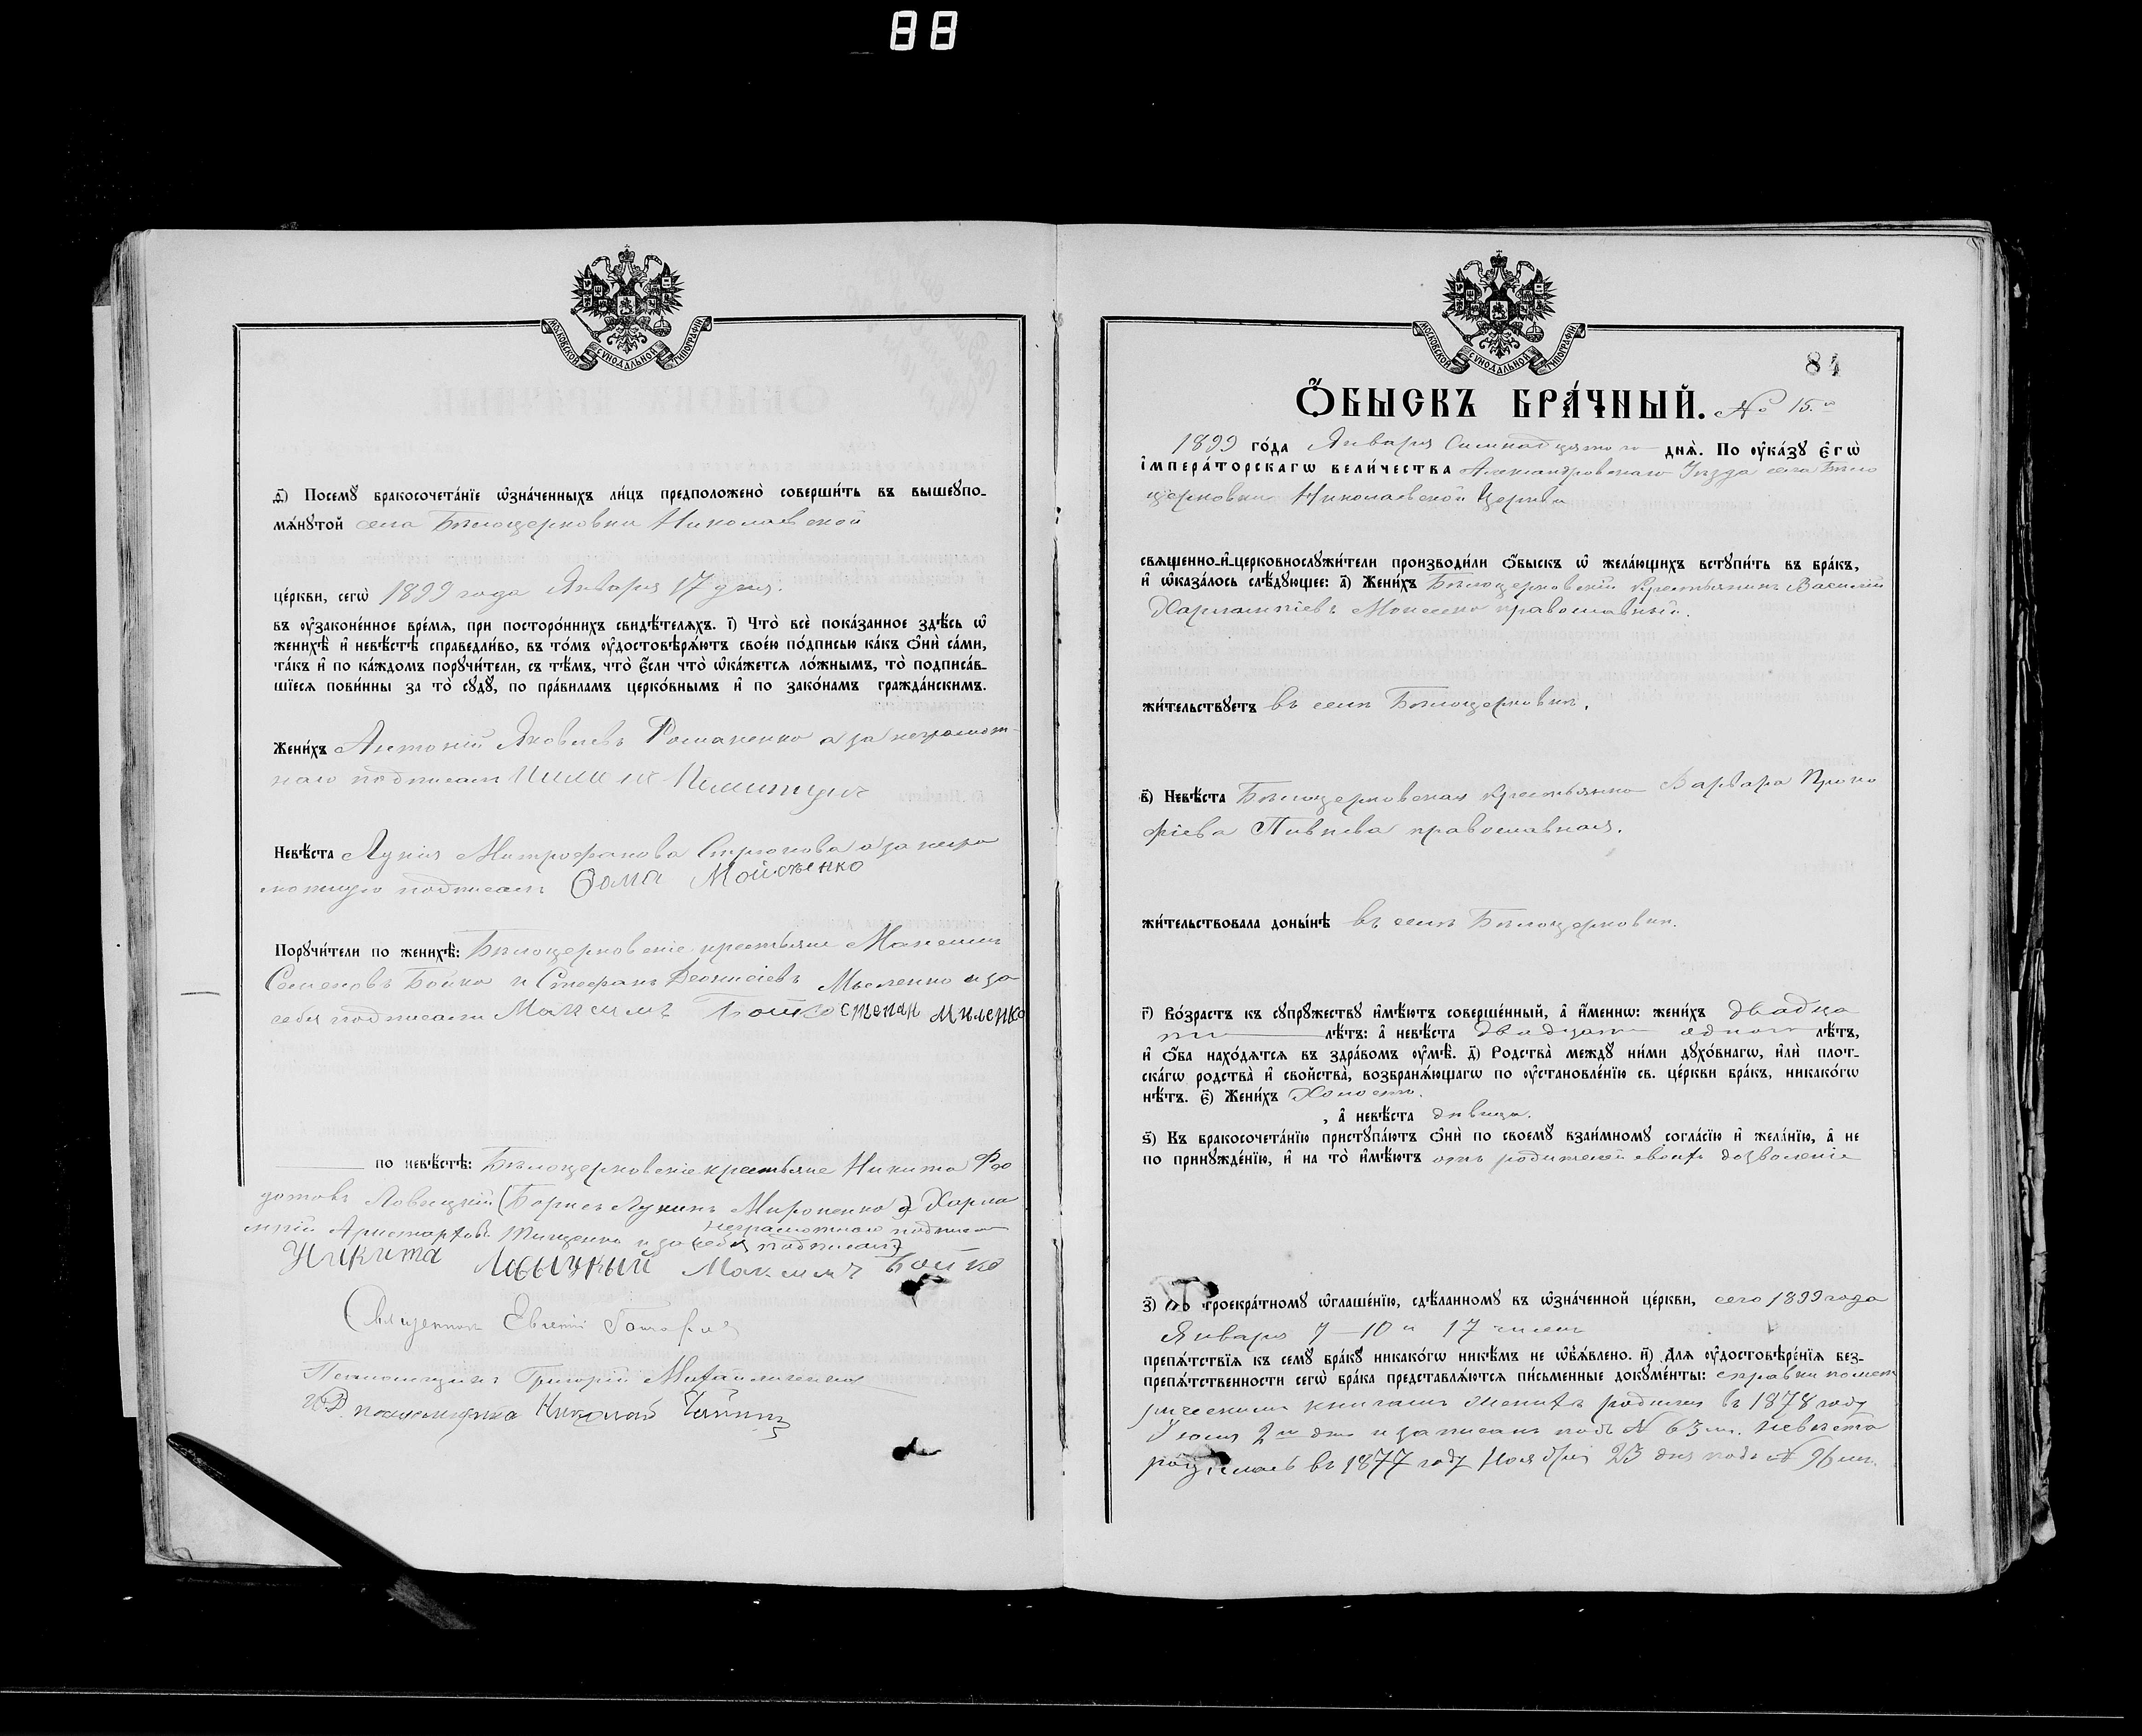 88
МОСКОВСКОЙ СѴНОДАЛЬНОЙ ТИПОГРАФІИ
ѳ҃) Посемꙋ̀ бракосочета́нїе ѡ҆зна́ченныхъ ли́цъ предположено̀ соверши́ть въ вышеꙋпо-
мѧ́нꙋтой села Бѣлоцерковки Николаевской
це́ркви, сегѡ̀ 1899 года Января 17 дня.
въ ᲂу҆зако́ненное вре́мѧ, при посторо́ннихъ свидѣ́телѧхъ. і҃) Что̀ всѐ пока́занное здѣ́сь ѡ҆
женихѣ̀ и҆ невѣ́стѣ справедли́во, въ то́мъ ᲂу҆достовѣрѧ́ютъ свое́ю по́дписью ка́къ ѻ҆нѝ са́ми,
та́къ и҆ по ка́ждомъ порꙋчи́тели, съ тѣ́мъ, что̀ є҆́сли что̀ ѡ҆ка́жетсѧ ло́жнымъ, то̀ подписа́в-
шїесѧ пови́нны за то̀ сꙋдꙋ̀, по пра́виламъ церко́внымъ и҆ по зако́намъ гражда́нскимъ.
Жени́хъ Антоній Яковлевъ Романенко а за неграмот-
наго подписалъ
Невѣ́ста Лукія Митрофанова Стрюкова а за негра
мотную подписалъ Ѳома Мойсѣенко
Порꙋчи́тели по женихѣ̀: Бѣлоцерковскіе крестьяне Максимъ
Семеновъ Бойко и Стефанъ Леонтіевъ Мыленко и за
себя подписали Максимъ Бойко Степан Миленко
по невѣ́стѣ: Бѣлоцерковскіе крестьяне Никита Ѳео
дотовъ Ловицкій (Борисъ Лукинъ Мироненко) Харла
мпій Аристарховъ Тищенко и за себя подписал
неграмотнаго подписал
Никита Максимъ Бойко
Священникъ Евгеній
Псаломщикъ Григорій Михайличенко
И.Д. псаломщика Николай
МОСКОВСКОЙ СѴНОДАЛЬНОЙ ТИПОГРАФІИ
84
Ѻ҆БЫСКЪ БРА́ЧНЫЙ. № 15.й
1899 го́да Января Семнадцатаго днѧ̀. По ᲂу҆ка́зꙋ Є҆гѡ̀
і҆мпера́торскагѡ вели́чества Александровскаго Уѣзда села Бѣло
церковки Николаевской Церкви
свѧщенно-и҆-церковнослꙋжи́тели производи́ли ѻ҆́быскъ ѡ҆ жела́ющихъ встꙋпи́ть въ бра́къ,
и҆ ѡ҆каза́лось слѣ́дꙋющее: а҃) Жени́хъ Бѣлоцерковскій крестьянинъ Василій
Харлампіевъ Моисеенко православный.
жи́тельствꙋетъ въ селѣ Бѣлоцерковкѣ.
в҃) Невѣ́ста Бѣлоцерковская крестьянка Варвара Проко
фіева Пивнева православная.
жи́тельствовала доны́нѣ въ селѣ Бѣлоцерковкѣ.
г҃) Во́зрастъ къ сꙋпрꙋ́жествꙋ и҆мѣ́ютъ соверше́нный, а҆ и҆́меннѡ: жени́хъ двадца
ти лѣ́тъ: а҆ невѣ́ста двадцати одного лѣ́тъ,
и҆ ѻ҆́ба нахо́дѧтсѧ въ здра́вомъ ᲂу҆мѣ̀. д҃) Родства̀ междꙋ̀ ни́ми дꙋхо́внагѡ, и҆лѝ плот-
ска́гѡ родства̀ и҆ сво́йства, возбранѧ́ющагѡ по ᲂу҆становле́нїю св. це́ркви бра́къ, никако́гѡ
нѣ́тъ. є҃) Жени́хъ Холостъ
, а҆ невѣ́ста дѣвица.
ѕ҃) Къ бракосочета́нїю пристꙋпа́ютъ ѻ҆нѝ по своемꙋ̀ взаи́мномꙋ согла́сїю и҆ жела́нїю, а҆ не
по принꙋжде́нїю, и҆ на то̀ и҆мѣ́ютъ отъ родителей своихъ дозволеніе
з҃) По троекра́тномꙋ ѡ҆глаше́нїю, сдѣ́ланномꙋ въ ѡ҆зна́ченной це́ркви, сего 1899 года
Января 7 – 10 и 17 чиселъ
препѧ́тствїѧ къ семꙋ̀ бра́кꙋ никако́гѡ никѣ́мъ не ѡ҆б̾ѧ́влено. и҃) Для ᲂу҆достовѣре́нїѧ без-
препѧ́тственности сегѡ̀ бра́ка представлѧ́ютсѧ пи́сьменные докꙋме́нты: справки по мет
рическимъ книгамъ Женихъ родился въ 1878 году
2го дня и записанъ подъ № 63 м. Невѣста
родилась въ 1877 году Ноября 23 дня подъ №